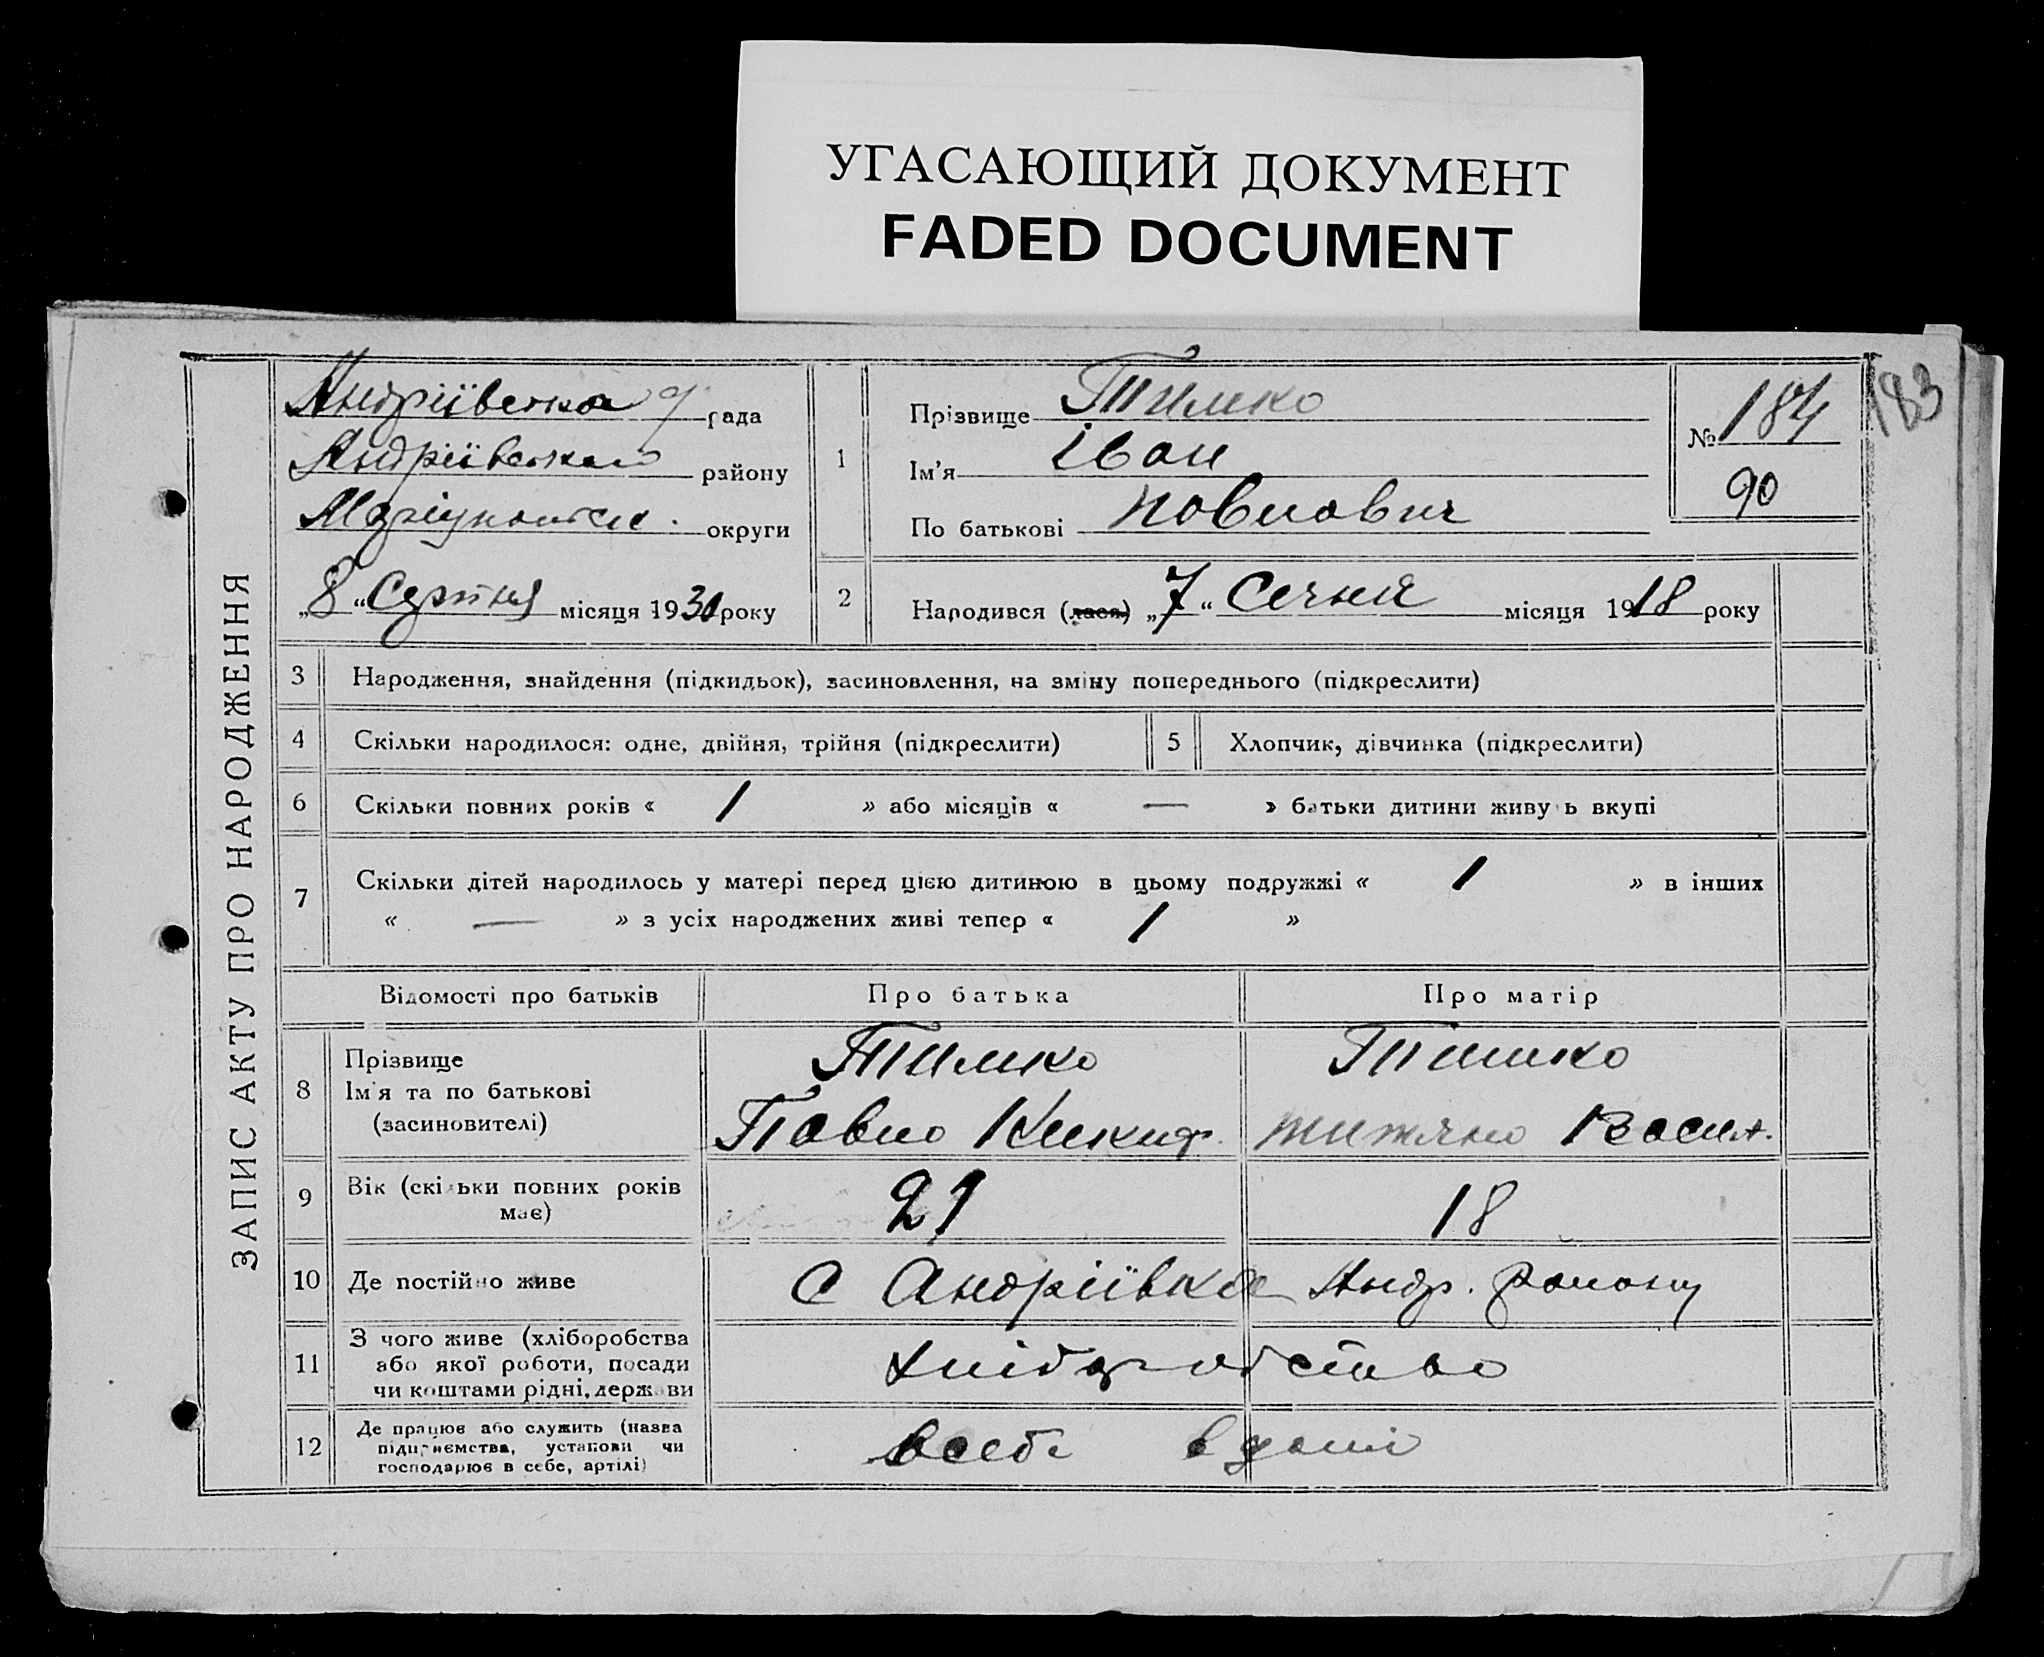 УГАСАЮЩИЙ ДОКУМЕНТ
FADED DOCUMENT
183
ЗАПИС АКТУ ПРО НАРОДЖЕННЯ
Андріївська рада
Андріївського району
округи
„8“ Серпня місяця 1930 року
1
Прізвище Тимко
Ім'я Іван
По батькові Павлович
№ 184
90
2
Народився (лася) „7“ Січня місяця 1918 року
3 Народження, знайдення (підкидьок), засиновлення, на зміну попереднього (підкреслити)
4 Скільки народилося: одне, двійня, трійня (підкреслити)
5 Хлопчик, дівчинка (підкреслити)
6 Скільки повних років « 1 » або місяців « — » батьки дитини живуть вкупі
7 Скільки дітей народилось у матері перед цією дитиною в цьому подружжі « 1 » в інших
« — » з усіх народжених живі тепер « 1 »
Відомості про батьків Про батька Про матір
8 Прізвище
Ім'я та по батькові
(засиновителі)
Тимко Тимко
Павло Никиф. Васил.
9 Вік (скільки повних років
має)
21 18
10 Де постійно живе с Андріївка Андр. району
11 З чого живе (хліборобства
або якої роботи, посади
чи коштами рідні, держави
хліборобство
12 Де працює або служить (назва
підприємства, установи чи
господарює в себе, артілі)
в себе вдома